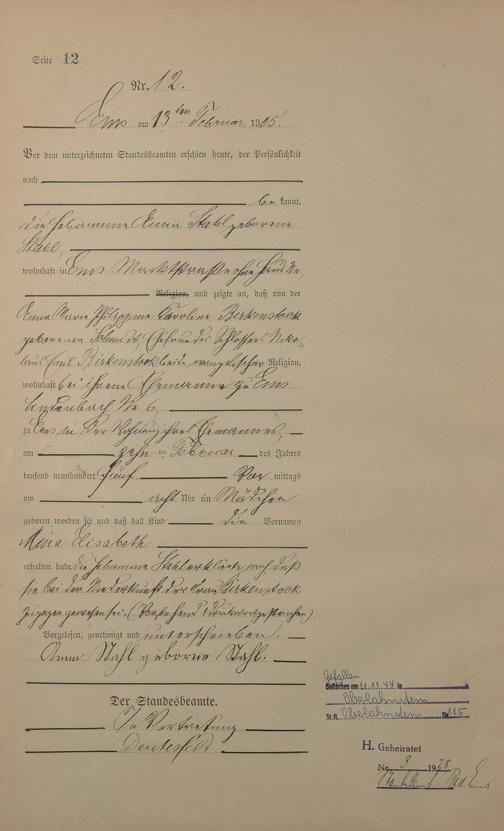 Seite 12
Nr. 12.
Ems am 13ten Februar 1905.
Vor dem unterzeichneten Standesbeamten erschien heute, der Persönlichkeit
nach
be kannt,
die Hebamme Anna Stahl geborene
Stahl,
wohnhaft in Ems Marktstraße ohne
Religion, und zeigte an, daß von der
Anna Marie Philippine Caroline Birkenstock
geborenen Schmidt, Ehefrau des Schlossers
Emil Birkenstock beide evangelischer Religion,
wohnhaft bei ihrem Ehemanne zu Ems
Lindenbach No 6,
zu Ems in der Wohnung ihres Ehemannes,
am zehn ten Februar des Jahres
tausend neunhundert fünf Vor mittags
um acht Uhr ein Mädchen
geboren worden sei und daß das Kind die Vornamen
Mina Elisabeth
erhalten habe. Die Hebamme Stahl erklärte noch daß
sie bei der Niederkunft der Frau Birkenstock
zugegen gewesen sei.
Vorgelesen, genehmigt und unterschrieben.
Anna Stahl geborne Stahl.
Der Standesbeamte.
In Vertretung
Gestorben am 11.11.44 in
Oberlahnstein
St.A. Oberlahnstein No 115
H. Geheiratet
No 3 1928
Standesamt Bad Ems